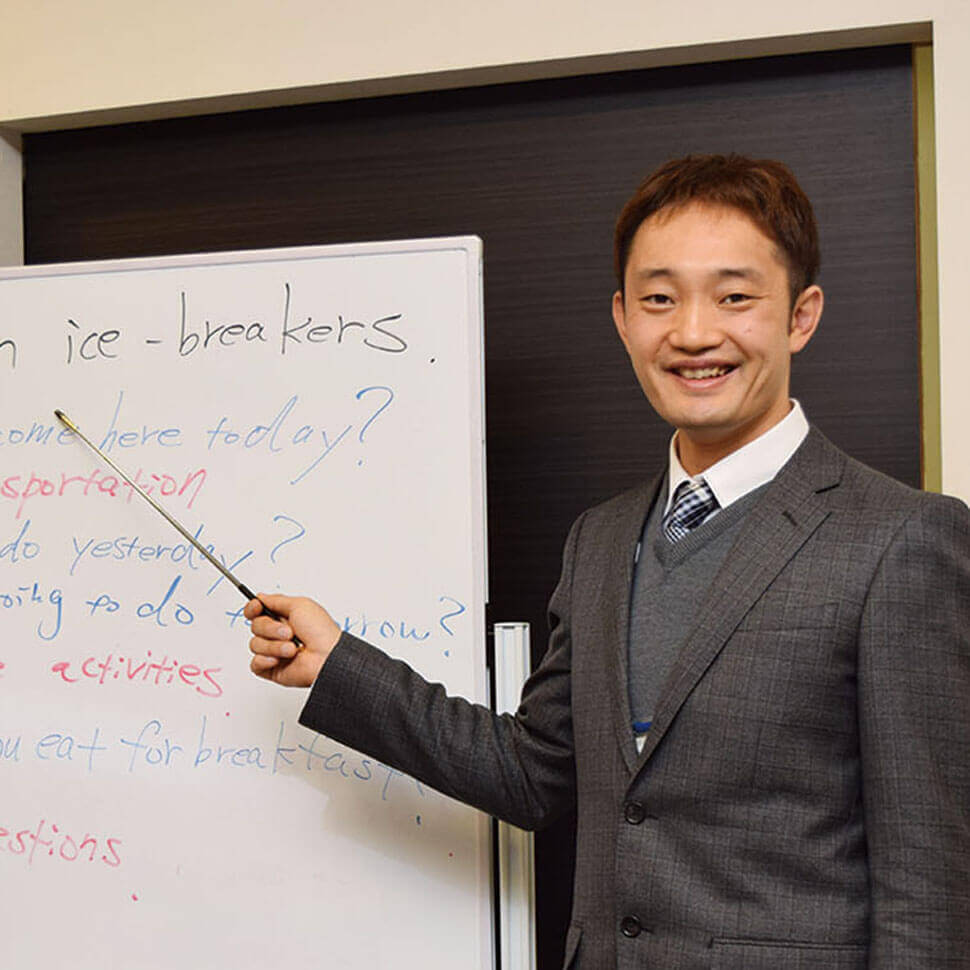 n ice-breakers.
come here today?
sportation
do yesterday?
oing to do tomorrow?
e activities.
ou eat for breakfast?
estions.